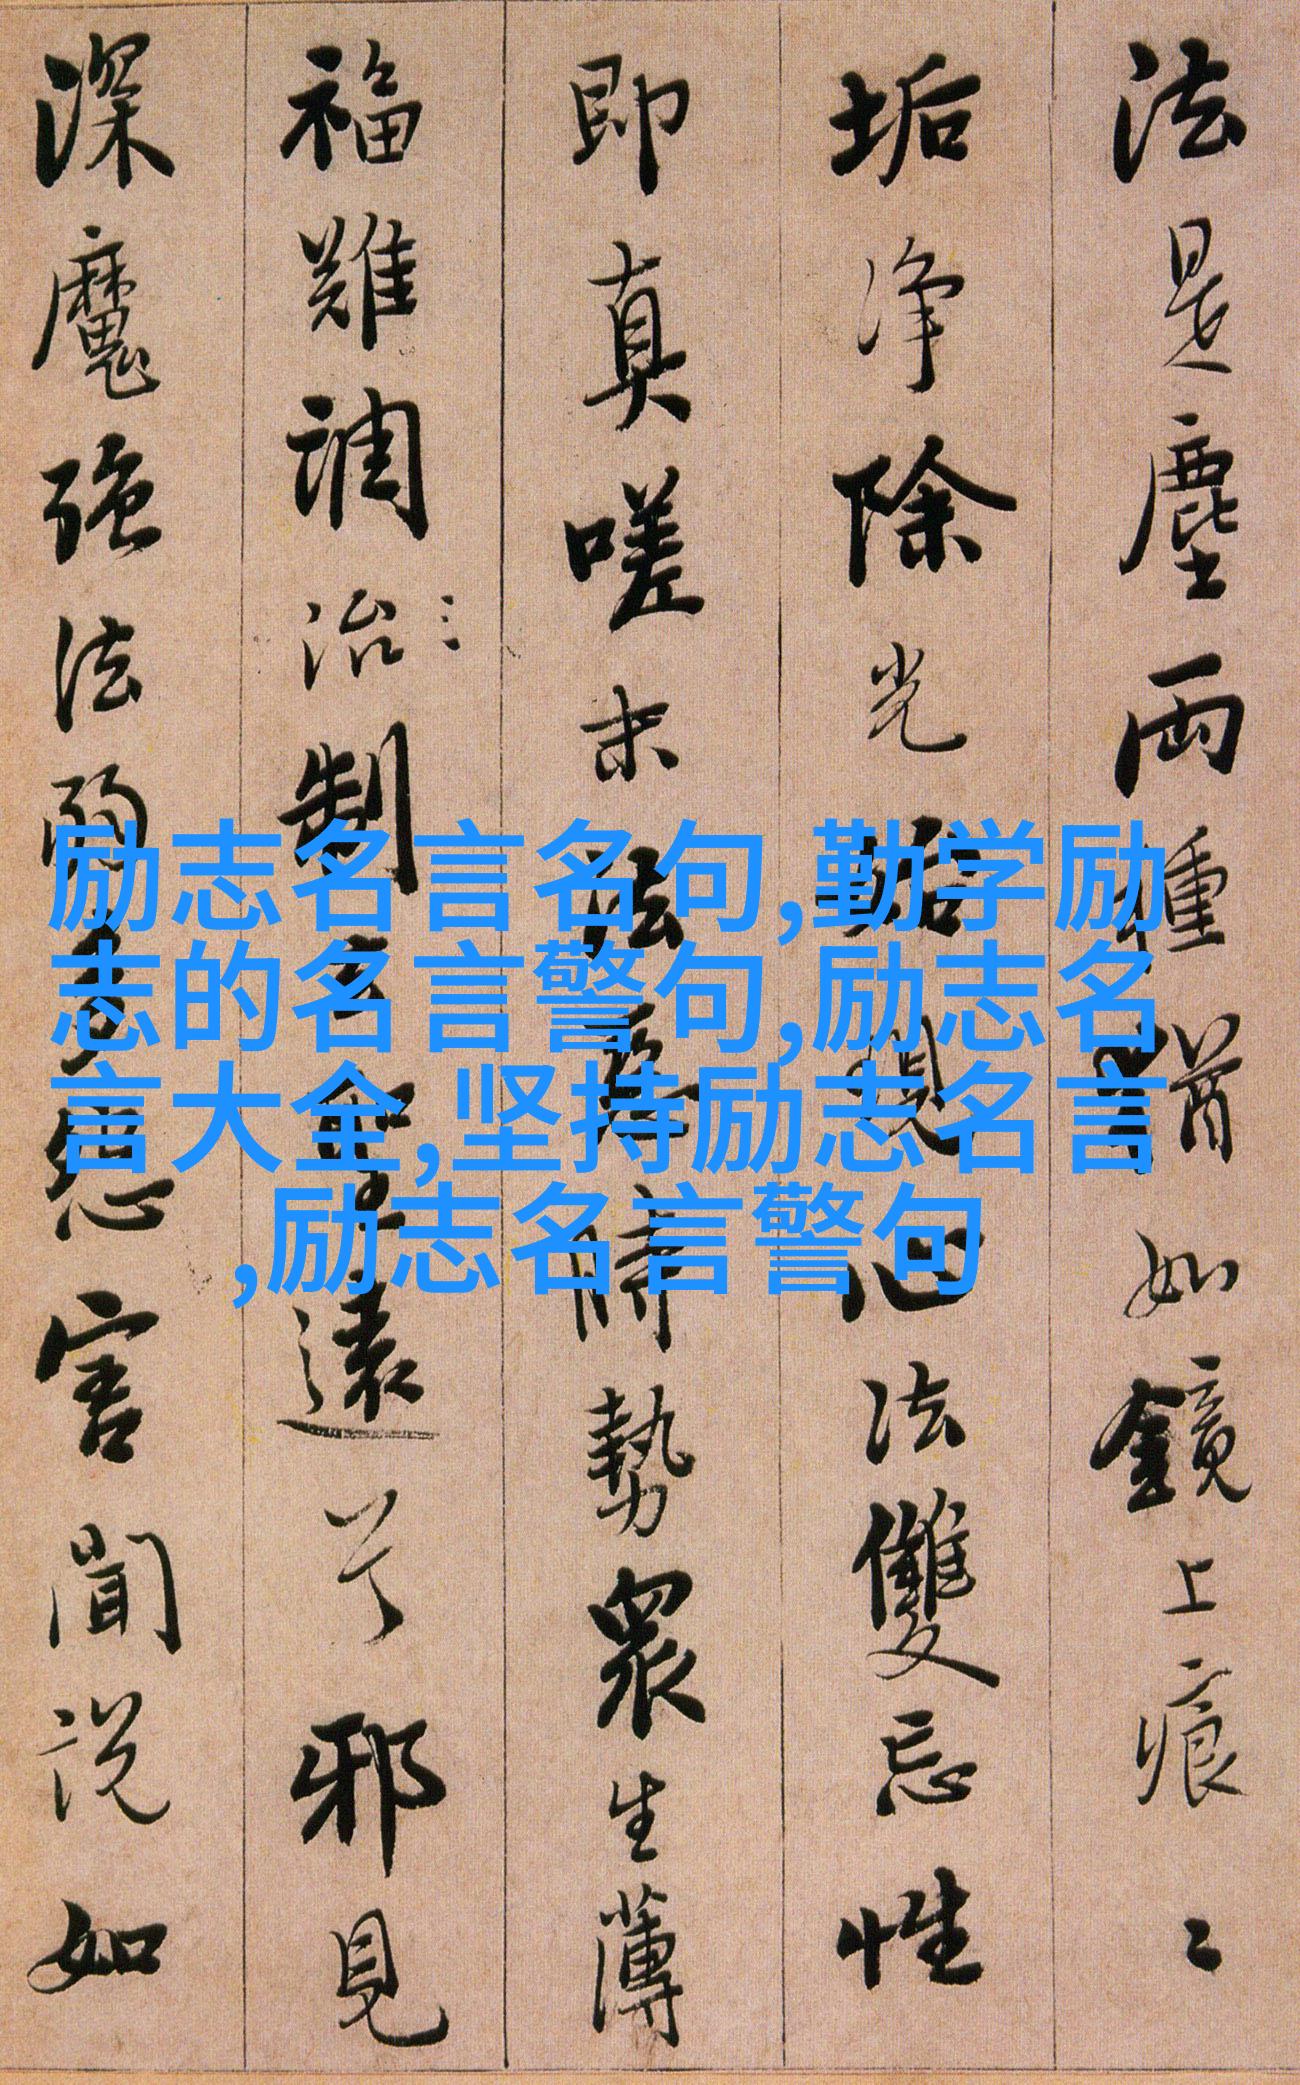 法是塵兩種猶如鏡上痕〻
垢淨除光始現心法雙忘性
即真嗟末法惡時勢衆生薄
福難調治制去聖遠兮邪見
深魔強法弱多怨害聞說如
励志名言名句,勤学励
志的名言警句,励志名
言大全,坚持励志名言
,励志名言警句